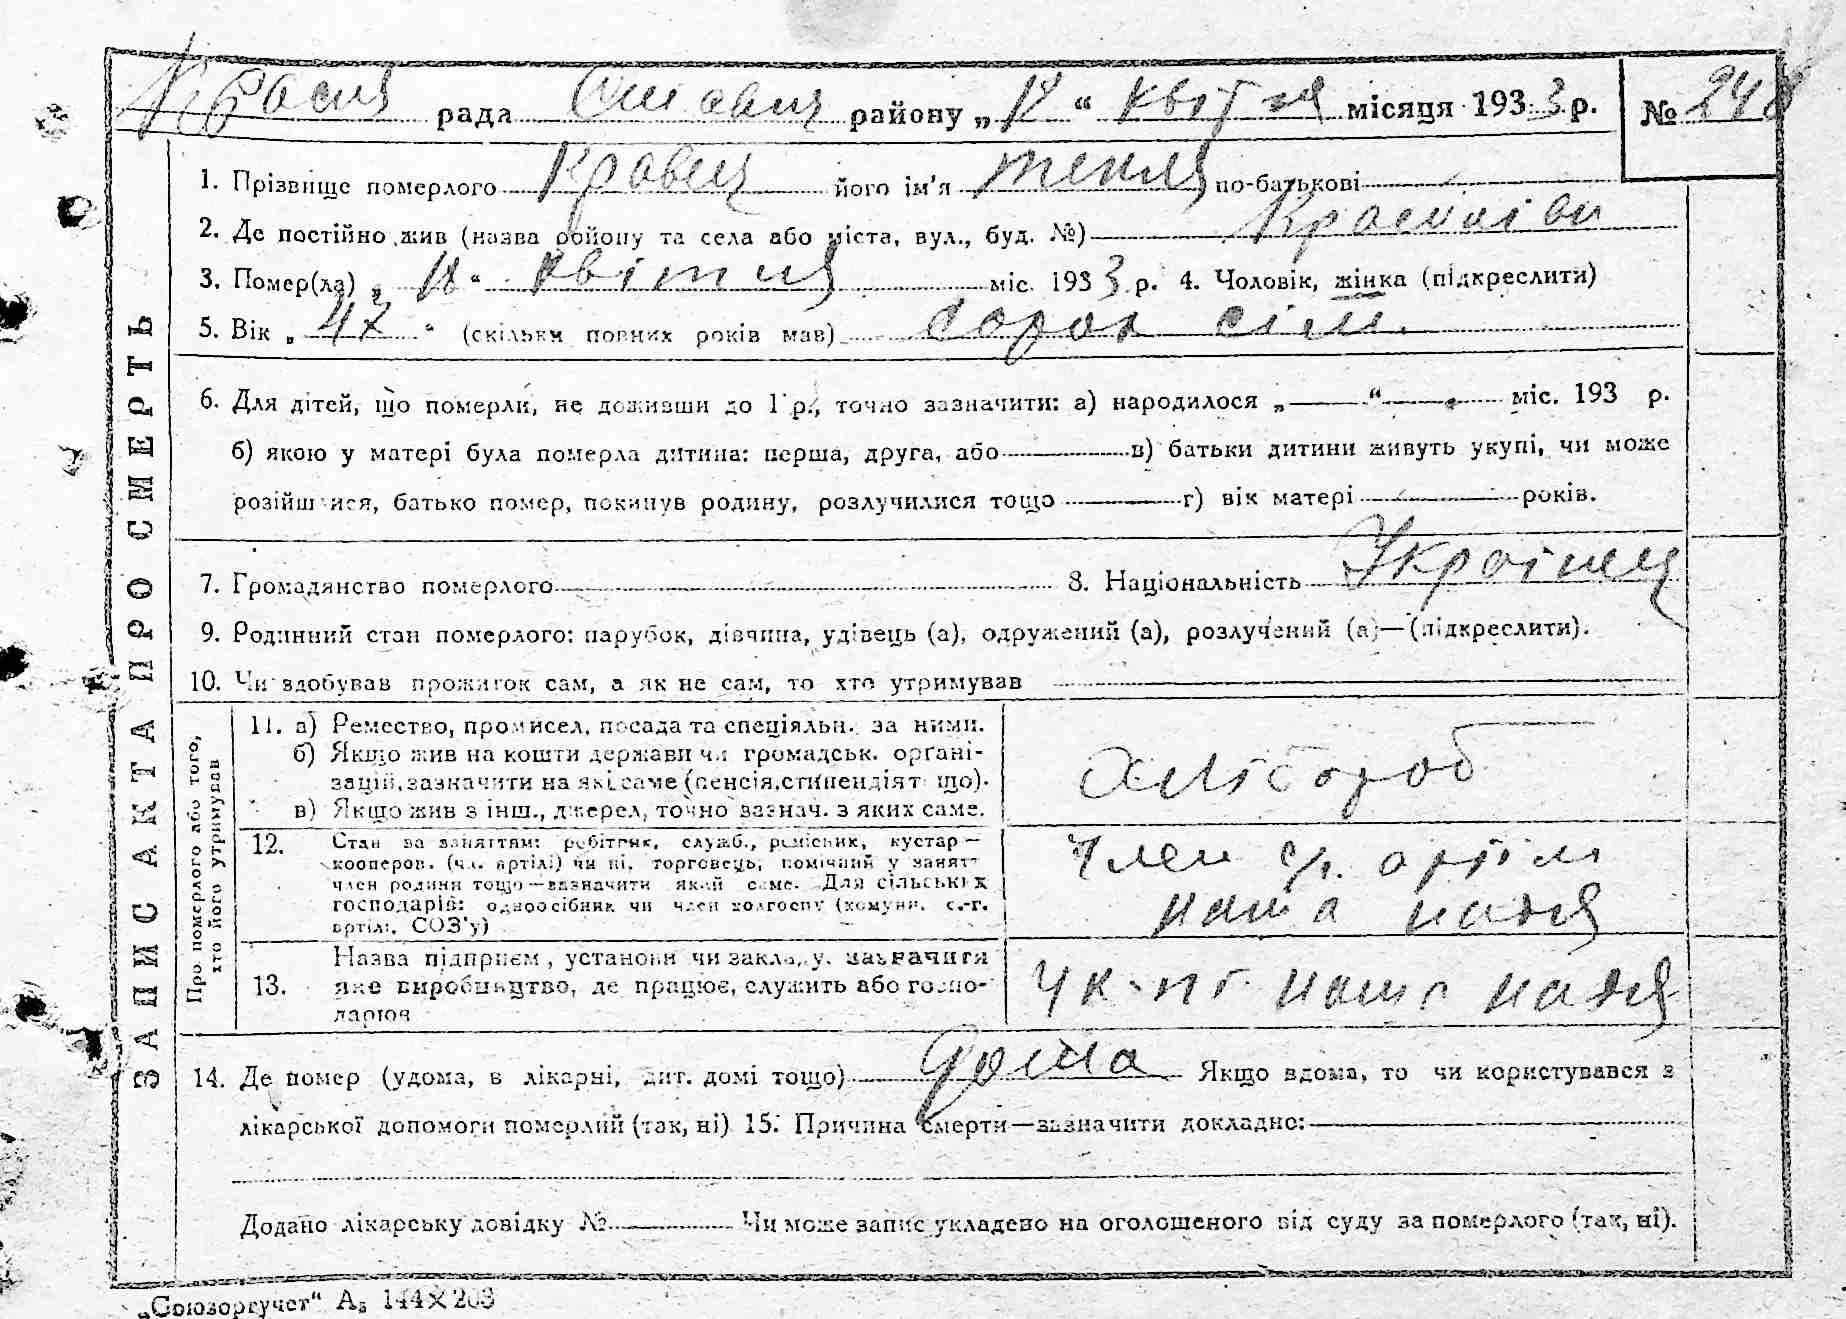 рада районе „18“ квітня місяця 1933 р. № 248
1. Прізвище померлого Кравец його ім'я Текля по-батькові
2. Де постійно жив (назва району та села або міста, вул., буд. №)
3. Помер(ла) „18“ квітня міс. 1933 р. 4. Чоловік, жінка (підкреслити)
5. Вік „47“ (скільки повних років мав) сорок сім.
6. Для дітей, що померли, не доживши до 1 р., точно зазначити: а) народилося „ “ міс. 193 р.
б) якою у матері була померла дитина: перша, друга, або в) батьки дитини живуть укупі, чи може
розійшлися, батько помер, покинув родину, розлучилися тощо г) вік матері років.
7. Громадянство померлого 8. Національність Українец
9. Родинний стан померлого: парубок, дівчина, удівець (а), одружений (а), розлучений (а)—(підкреслити).
10. Чи здобував прожиток сам, а як не сам, то хто утримував
Про померлого або того,
хто його утримував
11. а) Ремество, промисел, посада та спеціяльн. за ними.
б) Якщо жив на кошти держави чи громадськ. орґані-
зацій, зазначити на які саме (пенсія, стипендія т що).
в) Якщо жив з інш., джерел, точно зазнач. з яких саме.
Хлібороб
12. Стан за заняттям: робітник, служб., ремісник, кустар—
кооперов. (чл. артілі) чи ні, торговець, помічний у занятт
член родини тощо—зазначити який саме. Для сільських
господарів: одноосібник чи член колгоспу (комуни, с.-г.
артілі, СОЗ'у)
Член с/г. артіли
наша надія
13. Назва підприєм, установи чи закладу, зазначити
яке виробництво, де працює, служить або госпо-
дарює
наша надія
14. Де помер (удома, в лікарні, дит. домі тощо) дома Якщо вдома, то чи користувався з
лікарської допомоги померлий (так, ні) 15. Причина смерти—зазначити докладно:
Додано лікарську довідку № Чи може запис укладено на оголошеного від суду за померлого (так, ні).
ЗАПИС АКТА ПРО СМЕРТЬ
„Союзоргучет“ А₅ 144×203